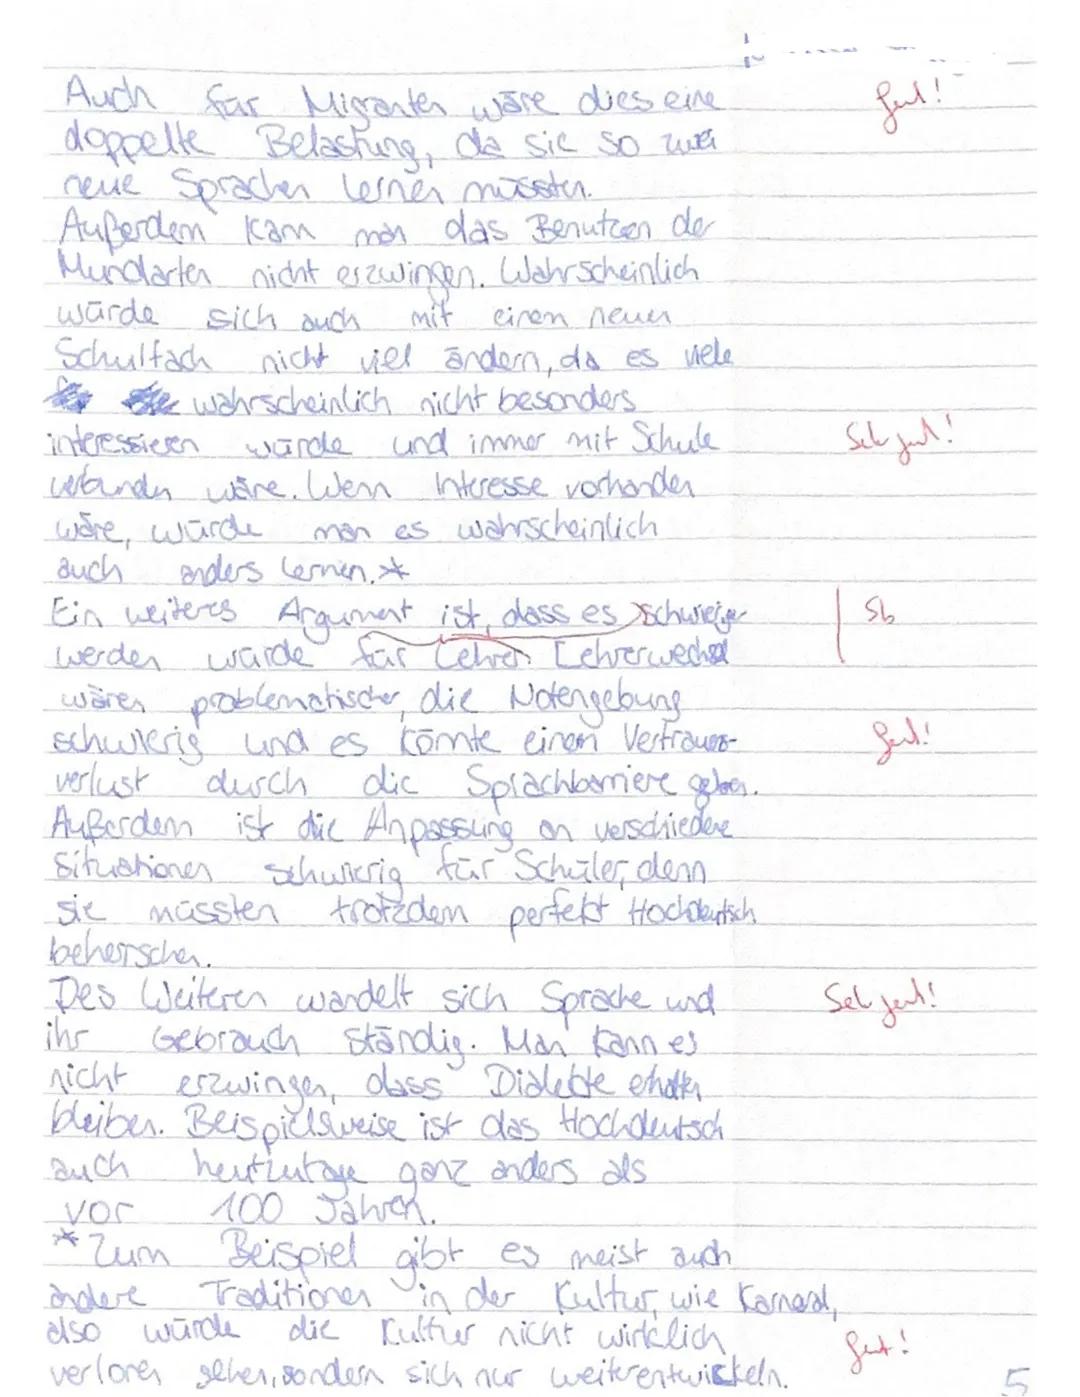 Auch für Migranten wäre dies eine gut!
doppelte Belastung, da sie so zwei
neue Sprachen lernen müssten.
Außerdem kann man das Benutzen der
Mundarten nicht erzwingen. Wahrscheinlich
würde sich auch mit einem neuen
Schulfach nicht viel ändern, da es viele
wahrscheinlich nicht besonders
interessieren würde und immer mit Schule Sehr gut!
verbunden wäre. Wenn Interesse vorhanden
wäre, würde man es wahrscheinlich
auch anders lernen.*
Ein weiteres Argument ist, dass es schwieriger Sb
werden würde für Lehrer. Lehrerwechsel
wären problematischer, die Notengebung
schwierig und es könnte einen Vertrauens- gut!
verlust durch die Sprachbarriere geben.
Außerdem ist die Anpassung an verschiedene
Situationen schwierig für Schüler, denn
sie müssten trotzdem perfekt Hochdeutsch
beherrschen.
Des Weiteren wandelt sich Sprache und Sehr gut!
ihr Gebrauch ständig. Man kann es
nicht erzwingen, dass Dialekte erhalten
bleiben. Beispielsweise ist das Hochdeutsch
auch heutzutage ganz anders als
vor 100 Jahren.
* Zum Beispiel gibt es meist auch
andere Traditionen in der Kultur, wie Karneval,
also würde die Kultur nicht wirklich gut!
verloren gehen, sondern sich nur weiterentwickeln. 5